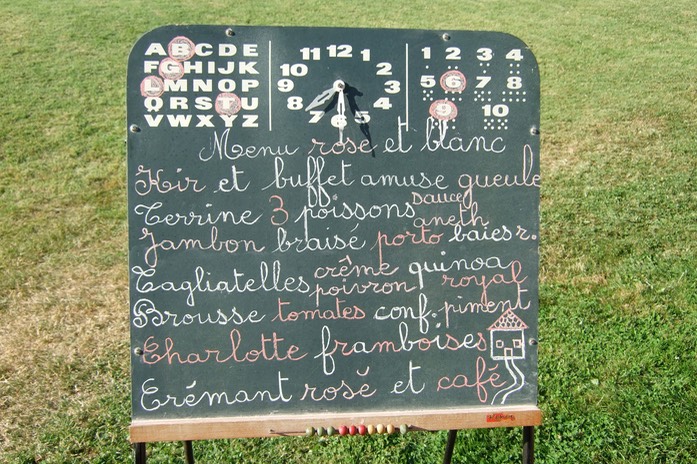 A B C D E
F G H I J K
L M N O P
Q R S T U
V W X Y Z
11 12 1
10 2
9 3
8 4
7 6 5
1 2 3 4
5 6 7 8
9 10
Menu rose et blanc
Kir et buffet amuse gueule
Terrine 3 poissons sauce aneth
Jambon braisé porto baies r.
Tagliatelles crême poivron quinoa royal
Brousse tomates conf. piment
Charlotte framboises
Crémant rosé et café